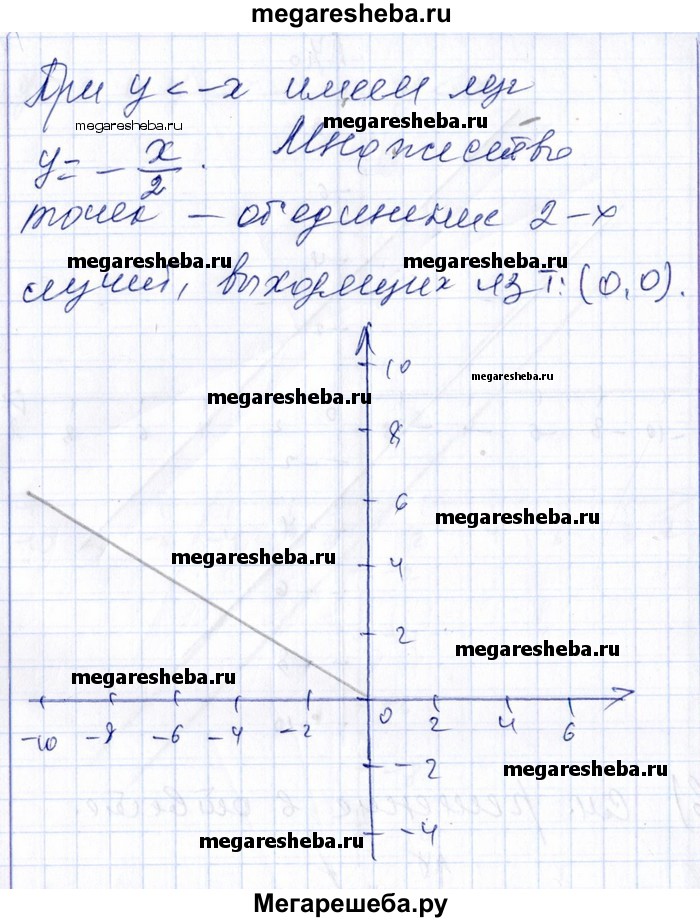 megaresheba.ru
При y < -x имеем луч
megaresheba.ru megaresheba.ru
y = - x/2. Множество
точек — объединение 2-х
megaresheba.ru megaresheba.ru
лучей, выходящих из т. (0,0).
10
megaresheba.ru
megaresheba.ru
8
6
megaresheba.ru
megaresheba.ru
4
2
megaresheba.ru
megaresheba.ru
-10 -8 -6 -4 -2 0 2 4 6
-2
megaresheba.ru
-4
megaresheba.ru
Мегарешеба.ру